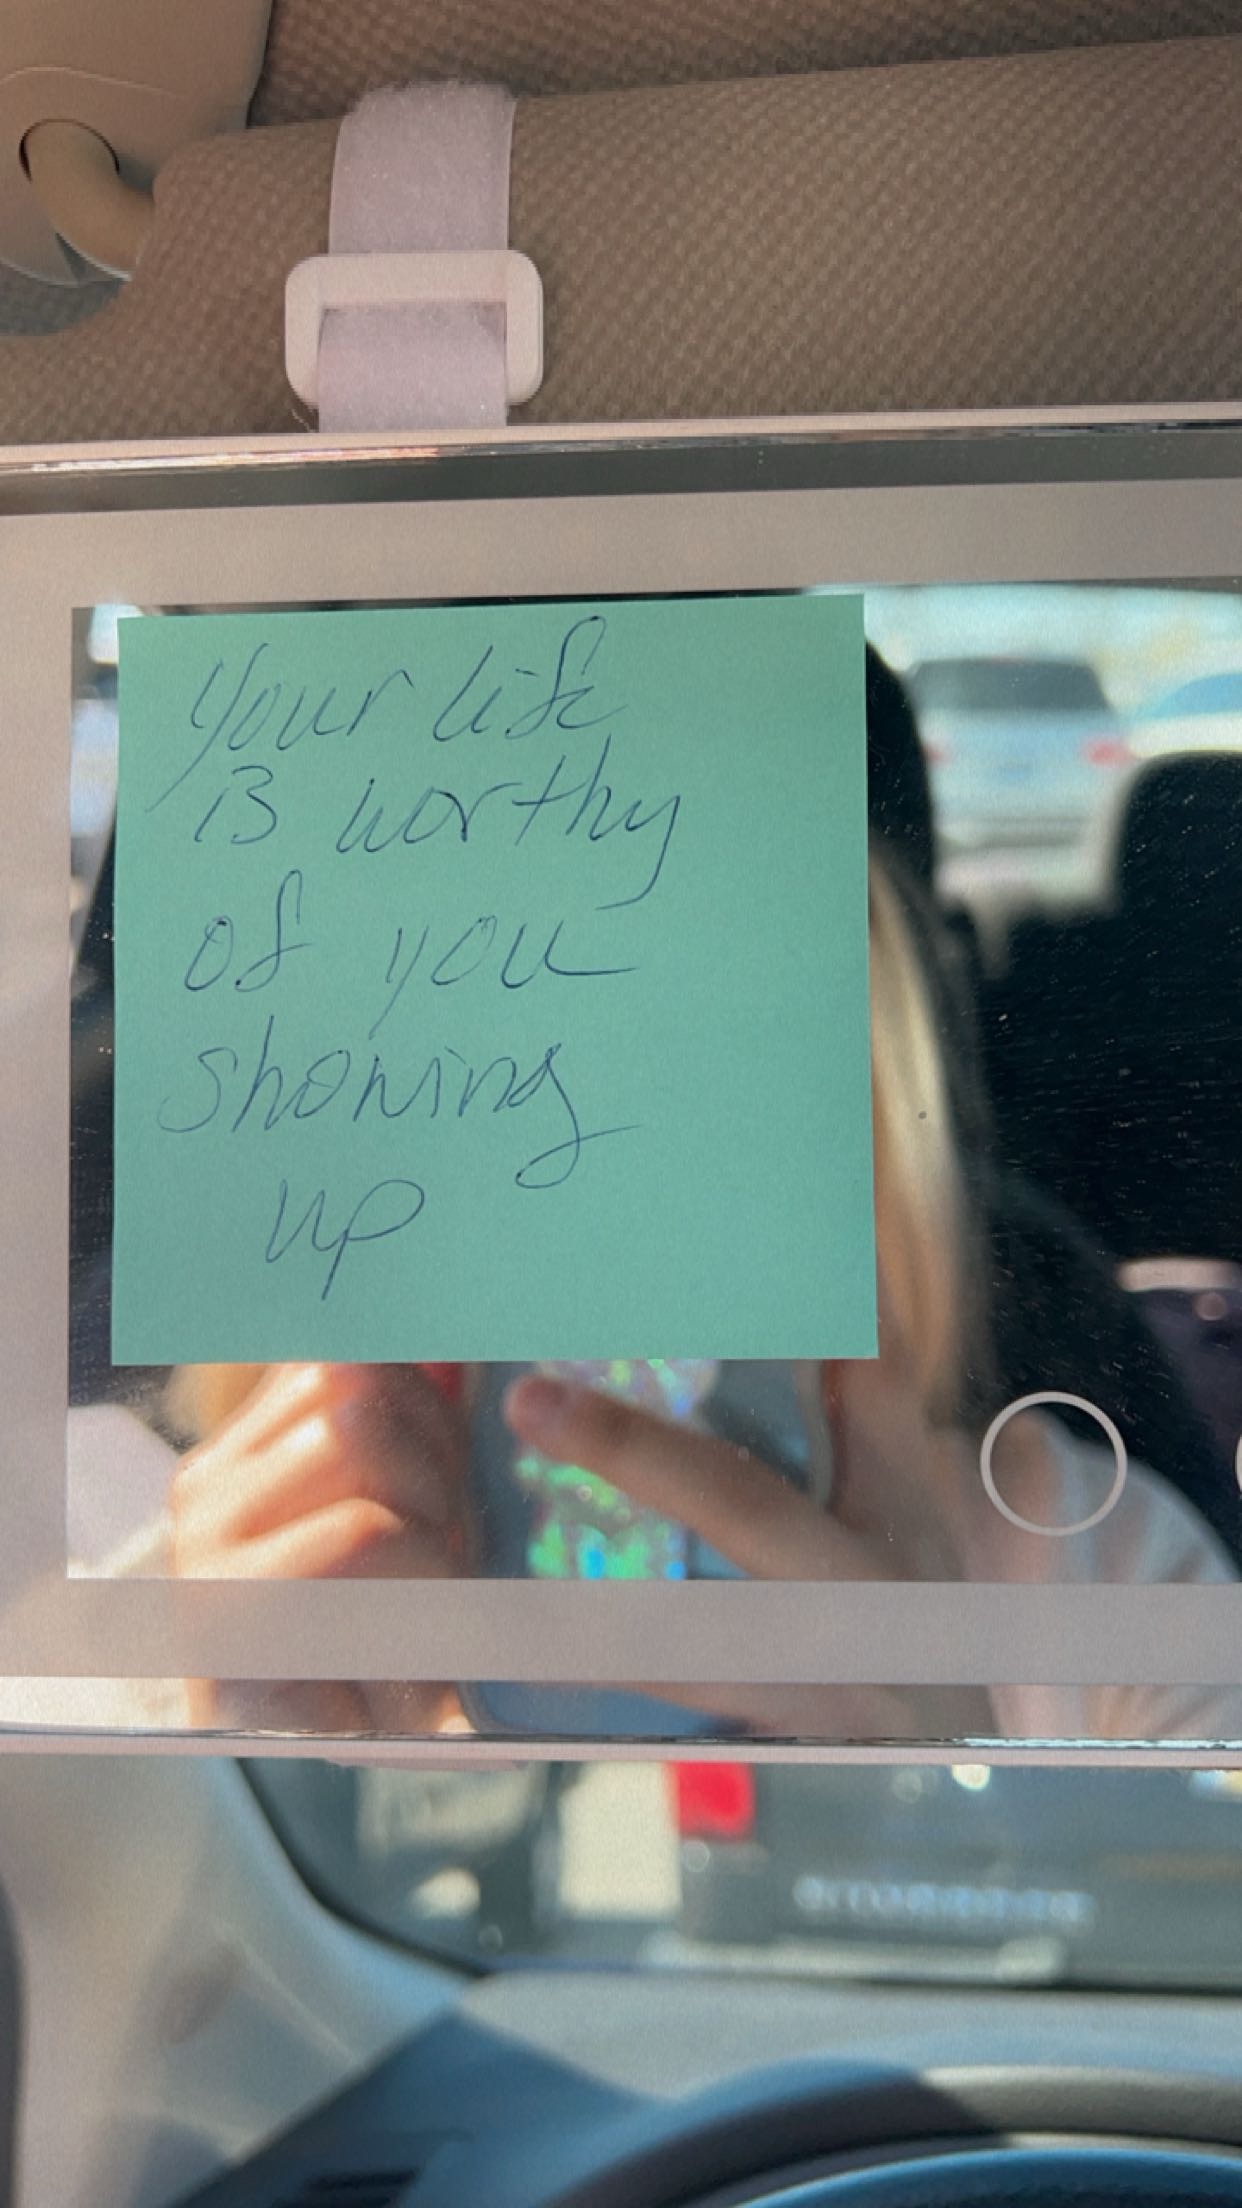 Your life
is worthy
of you
showing
up